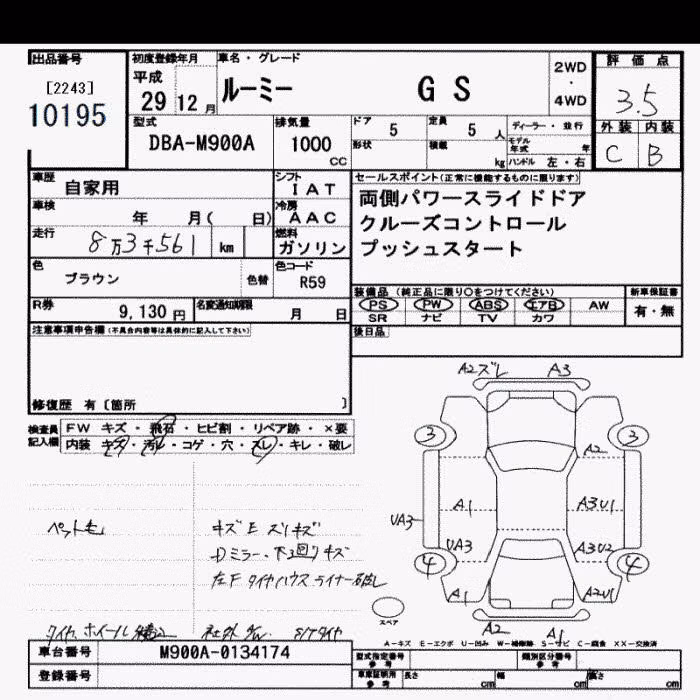 出品番号
[2243]
10195
初度登録年月
平成
29 12月
車名・グレード
ルーミー GS
2WD
・
4WD
評価点
3.5
外装 内装
C B
型式
DBA-M900A
排気量
1000
CC
ドア 5
定員 5 人
形状
積載 kg
ディーラー・並行
モデル年式 年
ハンドル 左・右
車歴
自家用
シフト
IAT
車検
年 月( 日)
冷房
AAC
走行
8万3千561 km
燃料
ガソリン
色
ブラウン
色替
色コード
R59
R券
9,130円
名変通知期限
月 日
セールスポイント(正常に機能するものに限ります)
両側パワースライドドア
クルーズコントロール
プッシュスタート
装備品(純正品に限り○をつけてください)
PS PW ABS エアB AW
SR ナビ TV カワ
新車保証書
有・無
後日品
注意事項申告欄(不具合内容等は具体的に記入して下さい)
修復歴 有〔箇所 〕
検査員
記入欄
FW キズ・飛石・ヒビ割・リペア跡・×要
内装 キズ・汚れ・コゲ・穴・スレ・キレ・破レ
ペット毛
キズE ズリキズ
Dミラー、下回りキズ
左F タイヤハウスライナー破レ
タイヤ、ホイール 社外 S/Tタイヤ
A2ズレ A3
3 3
A2
A1 A3U1
UA3
UA3 A3U2
4 4
A1 A2U1
スペア
A2 A1
A-キズ E-エクボ U-凹み W-補修跡 S-サビ C-腐食 XX-交換済
車台番号
M900A-0134174
登録番号
型式指定番号
参考
類別区分番号
参考
車庫証明用
参考
長さ cm
幅 cm
高さ cm